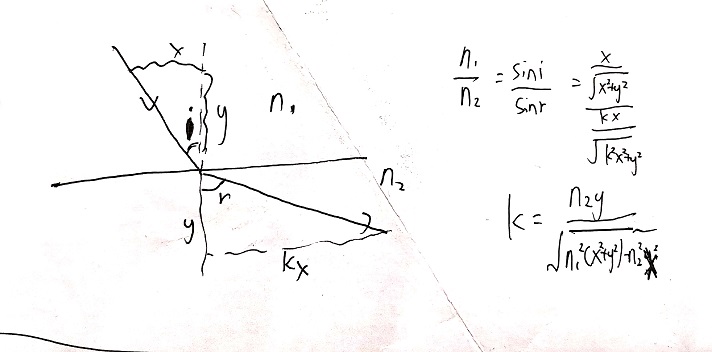 x
i
y
n₁
n₂
r
y
kx
n₁/n₂ = sin i/sin r = (x/√(x²+y²))/(kx/√(k²x²+y²))
k = n₂y/√(n₁²(x²+y²)-n₂²x²)